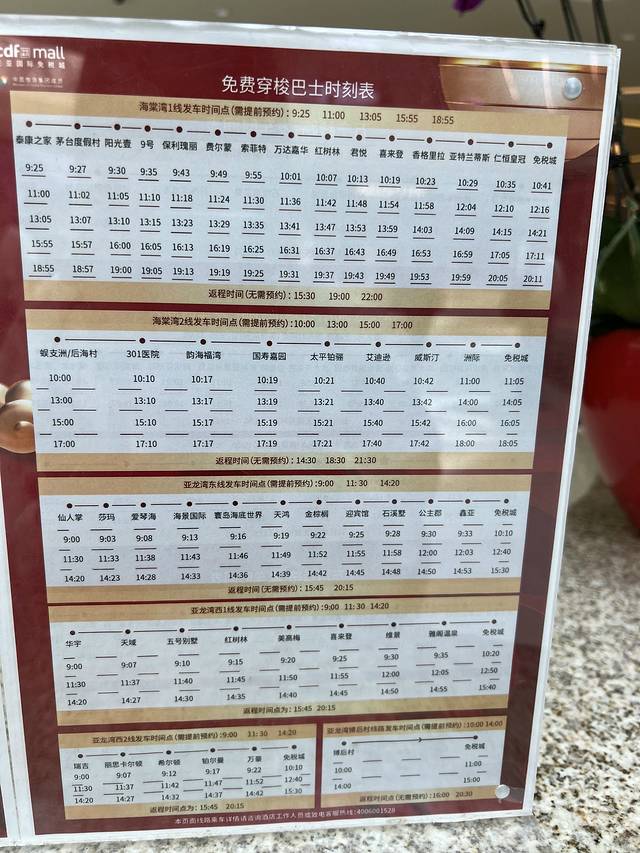 cdf mall
三亚国际免税城
免费穿梭巴士时刻表
海棠湾1线发车时间点(需提前预约)：9:25 11:00 13:05 15:55 18:55
泰康之家 茅台度假村 阳光壹 9号 保利瑰丽 费尔蒙 索菲特 万达嘉华 红树林 君悦 喜来登 香格里拉 亚特兰蒂斯 仁恒皇冠 免税城
9:25 9:27 9:30 9:35 9:43 9:49 9:55 10:01 10:07 10:13 10:19 10:23 10:29 10:35 10:41
11:00 11:02 11:05 11:10 11:18 11:24 11:30 11:36 11:42 11:48 11:54 11:58 12:04 12:10 12:16
13:05 13:07 13:10 13:15 13:23 13:29 13:35 13:41 13:47 13:53 13:59 14:03 14:09 14:15 14:21
15:55 15:57 16:00 16:05 16:13 16:19 16:25 16:31 16:37 16:43 16:49 16:53 16:59 17:05 17:11
18:55 18:57 19:00 19:05 19:13 19:19 19:25 19:31 19:37 19:43 19:49 19:53 19:59 20:05 20:11
返程时间(无需预约)：15:30 19:00 22:00
海棠湾2线发车时间点(需提前预约)：10:00 13:00 15:00 17:00
蜈支洲/后海村 301医院 韵海福湾 国寿嘉园 太平铂骊 艾迪逊 威斯汀 洲际 免税城
10:00 10:10 10:17 10:19 10:21 10:40 10:42 11:00 11:05
13:00 13:10 13:17 13:19 13:21 13:40 13:42 14:00 14:05
15:00 15:10 15:17 15:19 15:21 15:40 15:42 16:00 16:05
17:00 17:10 17:17 17:19 17:21 17:40 17:42 18:00 18:05
返程时间(无需预约)：14:30 18:30 21:30
亚龙湾东线发车时间点(需提前预约)：9:00 11:30 14:20
仙人掌 莎玛 爱琴海 海景国际 寰岛海底世界 天鸿 金棕榈 迎宾馆 石溪墅 公主郡 鑫亚 免税城
9:00 9:03 9:08 9:13 9:16 9:19 9:22 9:25 9:28 9:30 9:33 10:10
11:30 11:33 11:38 11:43 11:46 11:49 11:52 11:55 11:58 12:00 12:03 12:40
14:20 14:23 14:28 14:33 14:36 14:39 14:42 14:45 14:48 14:50 14:53 15:30
返程时间(无需预约)：15:45 20:15
亚龙湾西1线发车时间点(需提前预约)：9:00 11:30 14:20
华宇 天域 五号别墅 红树林 美高梅 喜来登 维景 雅阁温泉 免税城
9:00 9:07 9:10 9:15 9:20 9:25 9:30 9:35 10:20
11:30 11:37 11:40 11:45 11:50 11:55 12:00 12:05 12:50
14:20 14:27 14:30 14:35 14:40 14:45 14:50 14:55 15:40
返程时间点为：15:45 20:15
亚龙湾西2线发车时间点(需提前预约)：9:00 11:30 14:20
瑞吉 丽思卡尔顿 希尔顿 铂尔曼 万豪 免税城
9:00 9:07 9:12 9:17 9:22 10:10
11:30 11:37 11:42 11:47 11:52 12:40
14:20 14:27 14:32 14:37 14:42 15:30
返程时间点为：15:45 20:15
亚龙湾博后村线路发车时间点(需提前预约)：10:00 14:00
博后村 免税城
10:00 11:00
14:00 15:00
返程时间点(无需预约)：16:00 20:30
本页面线路乘车详情请咨询酒店工作人员或致电客服热线：4006001528